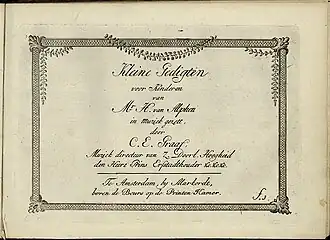 Kleine Gedigten
voor Kinderen
van
Mr. H. van Alphen
in muziek gezett,
door
C. E. Graaf
Muzick directeur van Z. Doorl. Hoogheid
den Heere Prins Erfstadthouder &c. &c. &c.
To Amsterdam, by Markordt,
boven de Beurs op de Printen-Kamer.
f. 3.